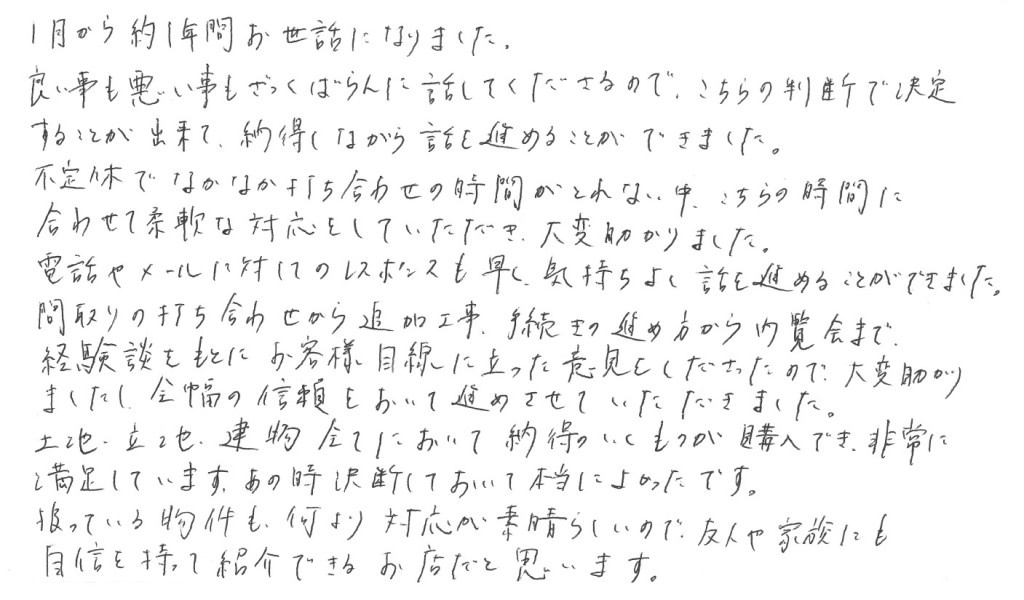 1月から約1年間お世話になりました。
良い事も悪い事もざっくばらんに話してくださるので、こちらの判断で決定
することが出来て、納得しながら話を進めることができました。
不定休でなかなか打ち合わせの時間がとれない中、こちらの時間に
合わせて柔軟な対応をしていただき、大変助かりました。
電話やメールに対してのレスポンスも早く、気持ちよく話を進めることができました。
間取りの打ち合わせから追加工事、手続きの進め方から内覧会まで、
経験談をもとにお客様目線に立った意見をくださったので、大変助かり
ましたし、全幅の信頼をおいて進めさせていただきました。
土地、立地、建物全てにおいて納得のいくものが購入でき、非常に
満足しています。あの時決断しておいて本当によかったです。
扱っている物件も、何より対応が素晴らしいので、友人や家族にも
自信を持って紹介できるお店だと思います。